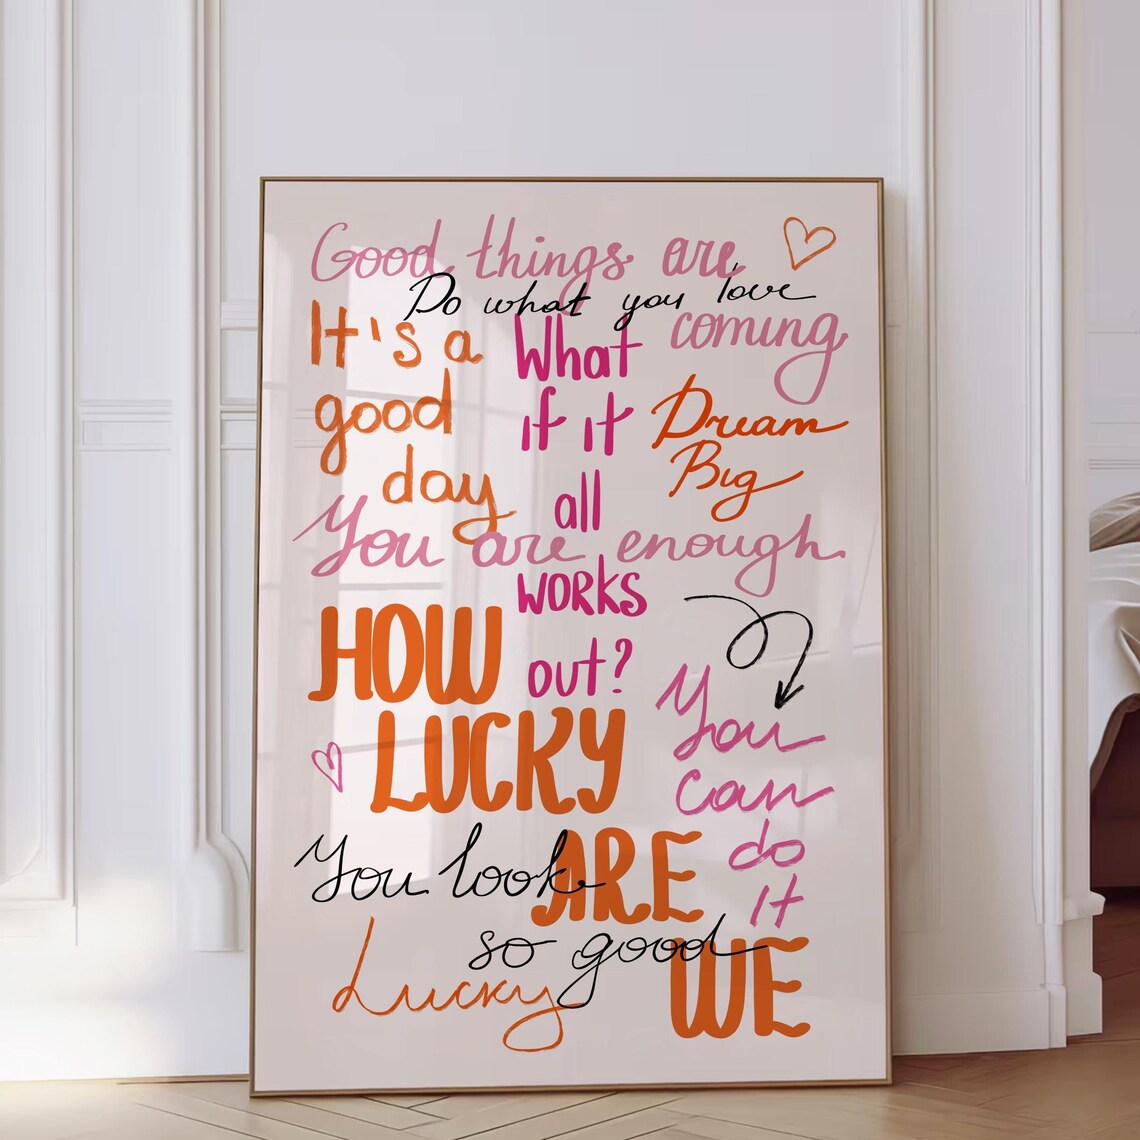 Good things are
coming
Do what you love
It's a
good
day
What
if it
all
works
out?
Dream
Big
You are enough
HOW
LUCKY
ARE
WE
You
can
do
it
You look
so good
Lucky